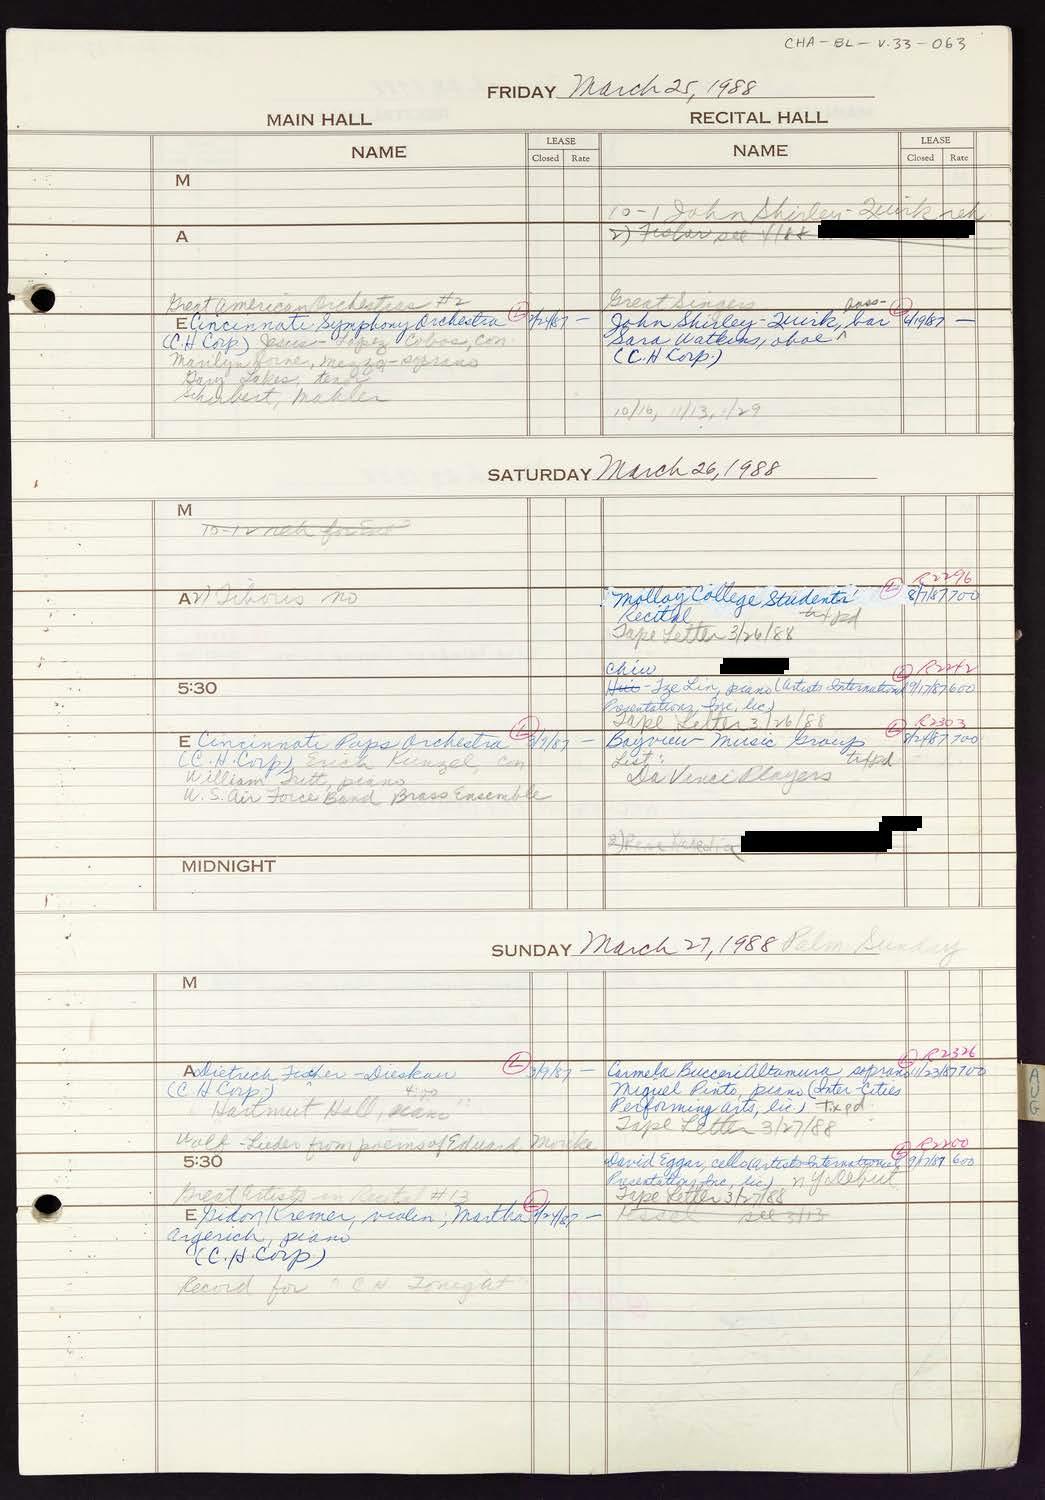 CHA-BL-V.33-063
FRIDAY March 25, 1988
MAIN HALL
RECITAL HALL
NAME
LEASE
Closed Rate
NAME
LEASE
Closed Rate
M
10-1 John Shirley-Quirk reh
A
2) Fisher see 4/88
Great American Orchestras #2
E Cincinnati Symphony Orchestra (L) /24/87 —
(C.H Corp) Jesus-Lopez Cobos, con.
Marilyn Horne, mezzo-soprano
Gary Lakes, tenor
Schubert, Mahler
Great Singers
bass-
John Shirley-Quirk, ^ bar (L) /19/87 —
Sara Watkins, oboe
(C.H Corp.)
10/16, 11/13, 1/29
SATURDAY March 26, 1988
M
10-12 reh for Eve
A 2) Tiboris no
R2296
"Molloy College Students' (L) 8/7/87 700
Recital tixpd
Tape Letter 3/26/88
Chiu
5:30
(L) R2242
Hui-Tze Lin, piano (Artists International 9/17/87 600
Presentations, Inc, lic)
Tape Letter 3/26/88
E Cincinnati Pops Orchestra (L) /9/87 —
(C.H. Corp) Erich Kunzel, con
William Tritt, piano
U.S. Air Force Band Brass Ensemble
(L) R2303
Bayview Music Group /87 700
List: tixpd
Da Vinci Players
2) Rene
MIDNIGHT
SUNDAY March 27, 1988 Palm Sunday
M
A Dietrich Fischer-Dieskau (L) /9/87 —
(C.H Corp.) 4:00
Hartmut Höll, piano
Wolf-Lieder from poems of Eduard Mörike
(L) R2326
Carmela Bucceri Altamura soprano 11/23/87 700
Miguel Pinto, piano (Inter-Cities
Performing Arts, lic.) tixpd
Tape Letter 3/27/88
5:30
(L) R2200
David Eggar, cello (Artists International 9/17/87 600
Presentations, Inc, lic) NY debut
Tape Letter 3/27/88
see 3/13
Great Artists in Recital #13
E Gidon Kremer, violin; Martha (L) /24/87 —
Argerich, piano
(C.H. Corp)
Record for "C H Tonight"
AUG